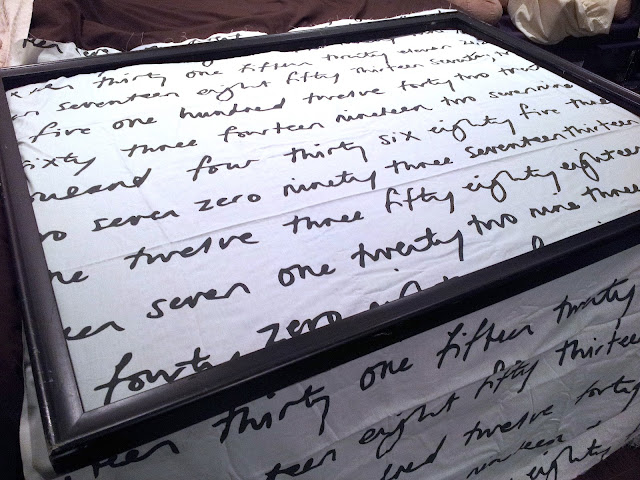 thirty one fifteen twenty eleven
seventeen eight fifty thirteen seventy
five one hundred twelve forty two
sixty three fourteen nineteen two seven nine
four thirty six eighty five three
seven zero ninety three seventeen thirteen
twelve three fifty eighty eighteen
seven one twenty two nine three
forty zero eight
teen thirty one fifteen twenty
teen eight fifty thirteen
twelve forty
eighty